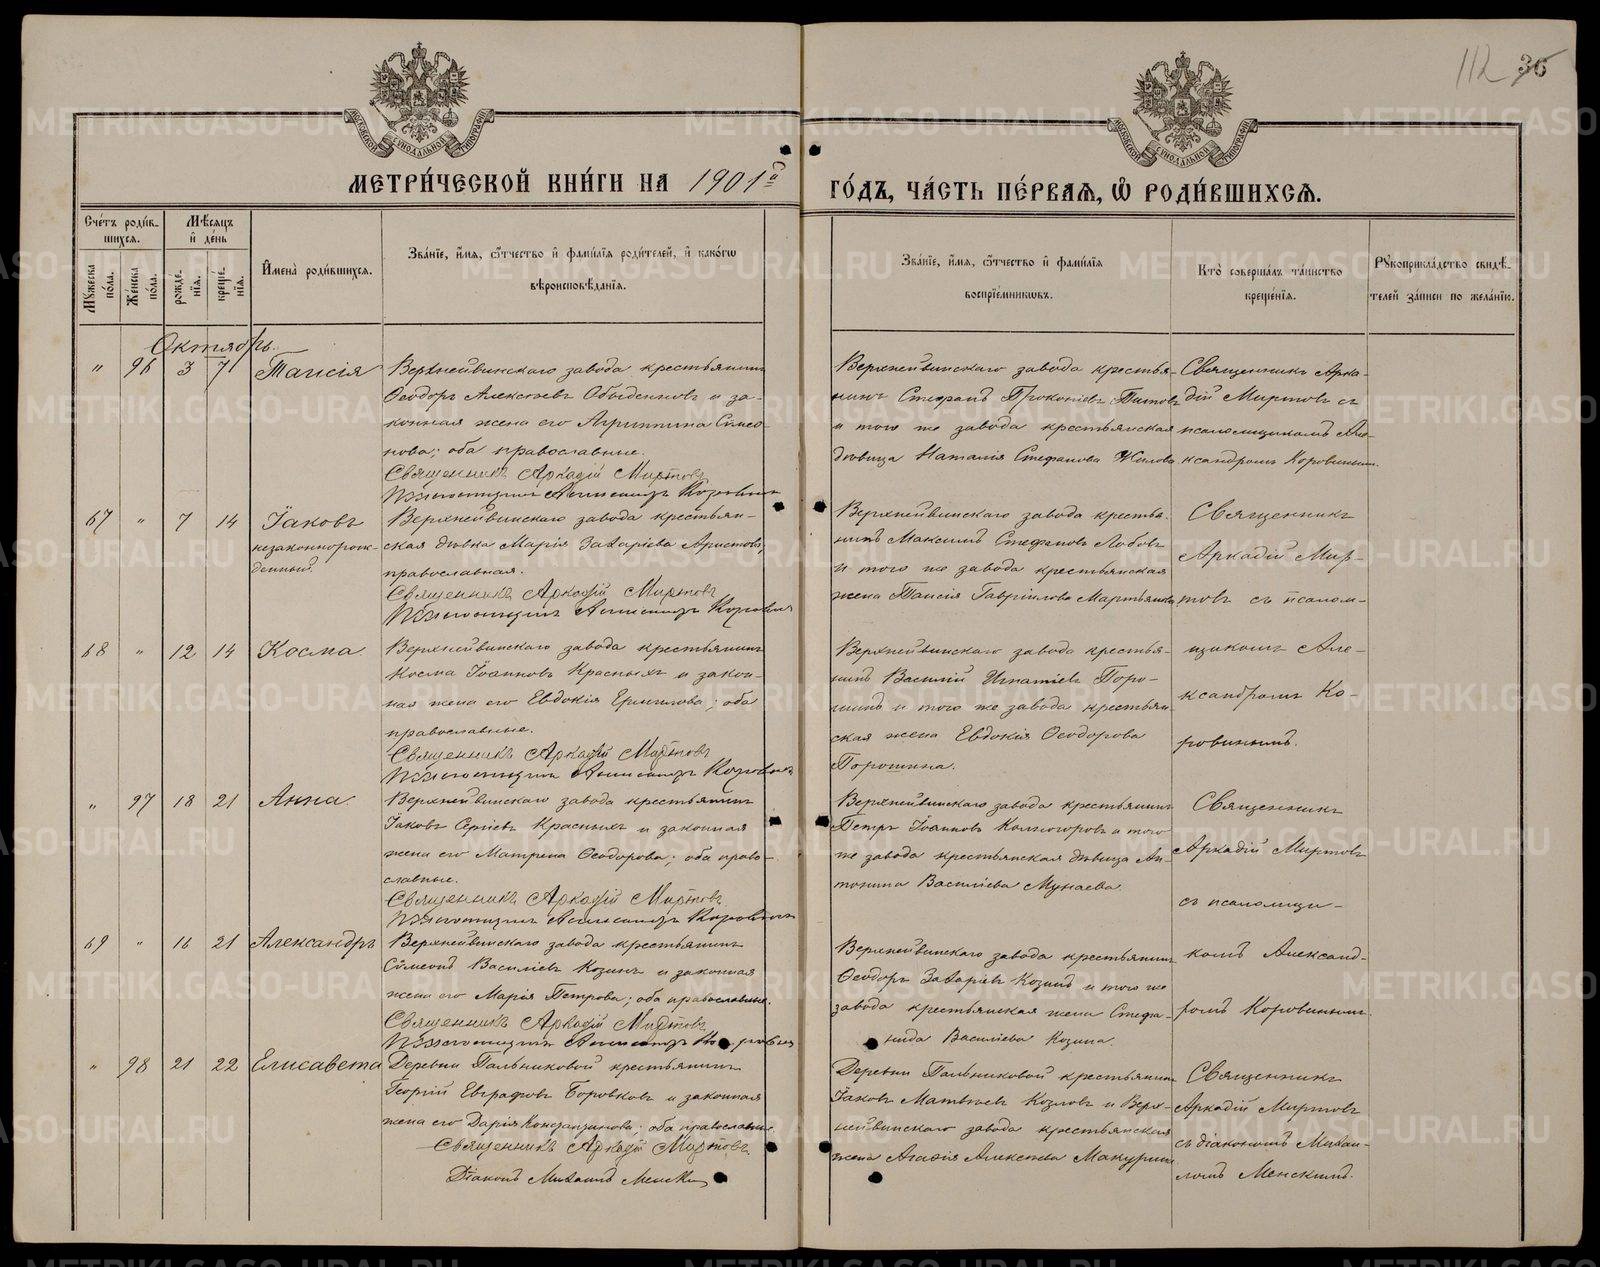 112 36
МОСКОВСКОЙ СѴНОДАЛЬНОЙ ТИПОГРАФІИ
МОСКОВСКОЙ СѴНОДАЛЬНОЙ ТИПОГРАФІИ
МЕТРИ́ЧЕСКОЙ КНИ́ГИ НА 1901й
ГО́ДЪ, ЧА́СТЬ ПЕ́РВАѦ, Ѽ РОДИ́ВШИХСѦ.
Сче́тъ роди́вшихся.
Мꙋ́жеска по́ла.
Же́нска по́ла.
Мѣ́сяцъ и҆ де́нь
рожде́нїя.
креще́нїя.
И҆мена̀ роди́вшихся.
Зва́нїе, и҆́мя, ѻ҆́тчество и҆ фами́лїя роди́телей, и҆ како́гѡ вѣроисповѣ́данїя.
Зва́нїе, и҆́мя, ѻ҆́тчество и҆ фами́лїя воспрїе́мникѡвъ.
Кто̀ соверша́лъ та́инство креще́нїя.
Рꙋкоприкла́дство свидѣ́телей за́писи по жела́нїю.
Октябрь.
" 96 3 7 Таисія
Верхнейвинскаго завода крестьянинъ
Ѳеодоръ Алексѣевъ Обыденновъ и за-
конная жена его Агриппина Сѵмео-
нова; оба православные.
Священникъ Аркадій Миртовъ
Псаломщикъ Александръ Коровинъ
Верхнейвинскаго завода крестья-
нинъ Стефанъ Прокопіевъ Титовъ
и того же завода крестьянская
дѣвица Наталія Стефанова
Священникъ Арка-
дій Миртовъ съ
псаломщикомъ Але-
ксандромъ Коровинымъ.
67 " 7 14 Іаковъ
незаконнорож-
денный.
Верхнейвинскаго завода крестьян-
ская дѣвка Марія Захаріева Аристова,
православная.
Священникъ Аркадій Миртовъ
Псаломщикъ Александръ Коровинъ
Верхнейвинскаго завода крестья-
нинъ Максимъ Стефановъ Лобовъ
и того же завода крестьянская
жена Таисія Гавріилова Мартьянова
Священникъ
Аркадій Мир-
товъ съ псалом-
68 " 12 14 Косма
Верхнейвинскаго завода крестьянинъ
Косма Іоанновъ Красныхъ и закон-
ная жена его Евдокія Ермилова; оба
православные.
Священникъ Аркадій Миртовъ
Псаломщикъ Александръ Коровинъ
Верхнейвинскаго завода крестья-
нинъ Василій Игнатіевъ Поро-
шинъ и того же завода крестьян-
ская жена Евдокія Ѳеодорова
Порошина.
щикомъ Але-
ксандромъ Ко-
ровинымъ.
" 97 18 21 Анна
Верхнейвинскаго завода крестьянинъ
Іаковъ Сергіевъ Красныхъ и законная
жена его Матрена Ѳеодорова; оба право-
славные.
Священникъ Аркадій Миртовъ
Псаломщикъ Александръ Коровинъ
Верхнейвинскаго завода крестьянинъ
Петръ Іоанновъ Колногоровъ и того
же завода крестьянская дѣвица Ан-
тонина Василіева Мунаева
Священникъ
Аркадій Миртовъ
съ псаломщи-
69 " 16 21 Александръ
Верхнейвинскаго завода крестьянинъ
Сѵмеонъ Василіевъ Козинъ и законная
жена его Марія Петрова; оба православные.
Священникъ Аркадій Миртовъ
Псаломщикъ Александръ Коровинъ
Верхнейвинскаго завода крестьянинъ
Ѳеодоръ Захаріевъ Козинъ и того же
завода крестьянская жена Стефа-
нида Василіева Козина.
комъ Александ-
ромъ Коровинымъ.
" 98 21 22 Елисавета
Деревни Пальниковой крестьянинъ
Георгій Евграфовъ Боровковъ и законная
жена его Дарія Константинова; оба православн.
Священникъ Аркадій Миртовъ
Діаконъ Михаилъ Менскій
Деревни Пальниковой крестьянинъ
Іаковъ Матвѣевъ Козловъ и Верх-
нейвинскаго завода крестьянская
жена Агафія Алексѣева Макурина
Священникъ
Аркадій Миртовъ
съ діакономъ Михаи-
ломъ Менскимъ.
METRIKI.GASO-URAL.RU